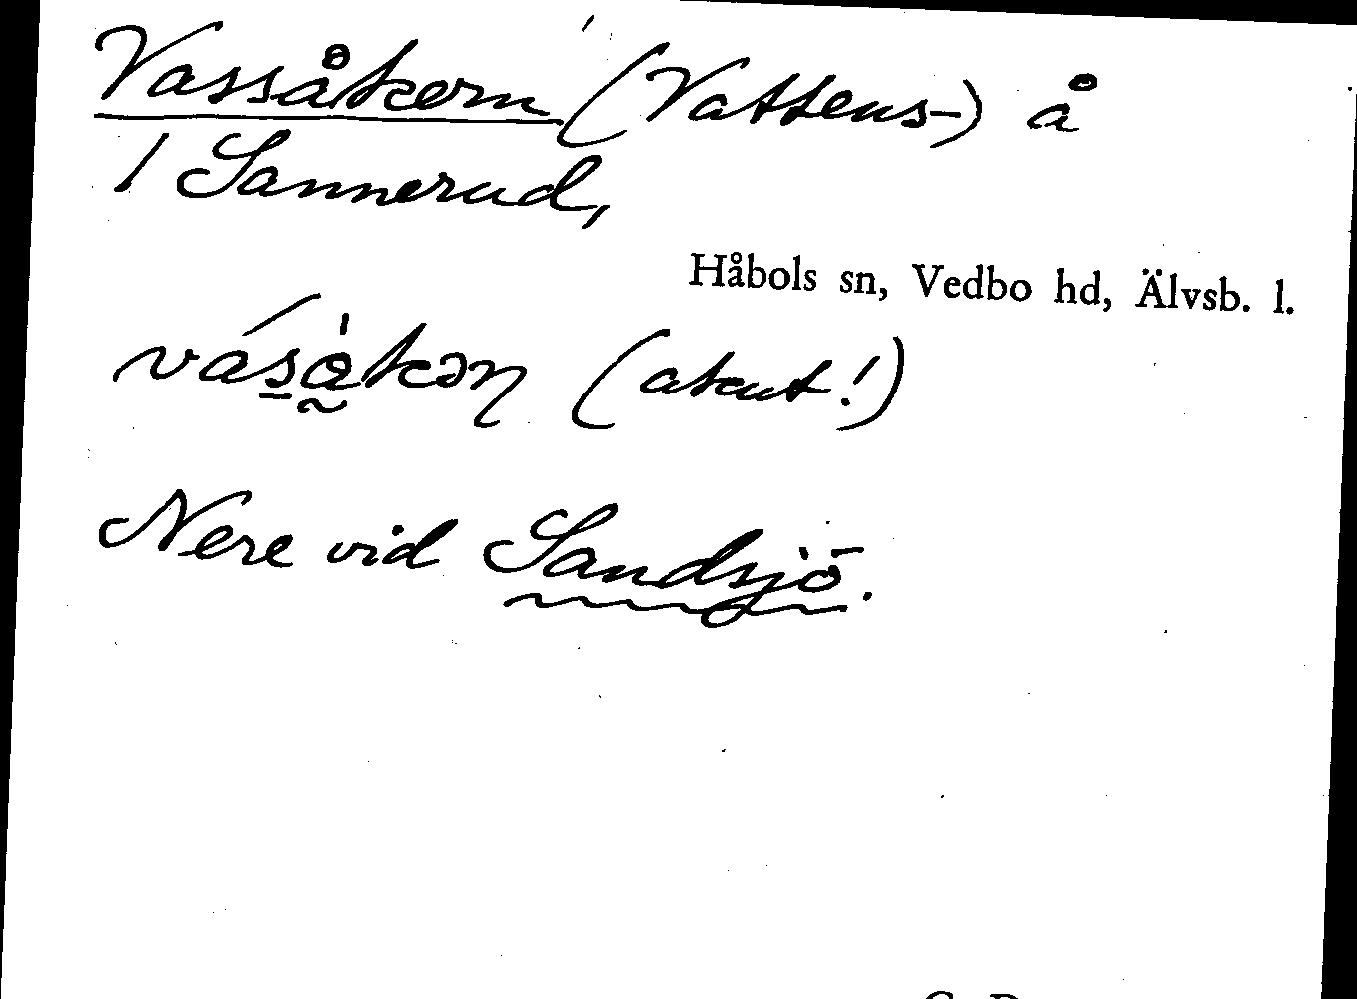 Vassåkern (Vattens-) å
1 Sannerud,
Håbols sn, Vedbo hd, Älvsb. l.
(akut!)
Nere vid Sandsjö.